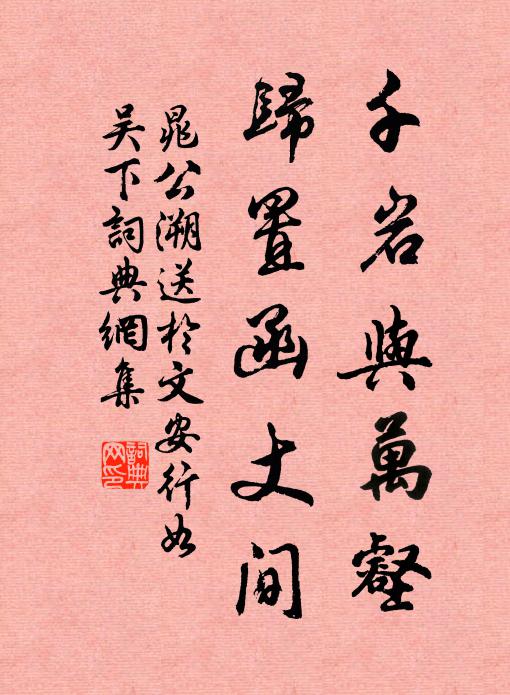 千岩與萬壑
歸置函丈间
晁公溯送於文安行如
吴下詞典網集
詞典网印